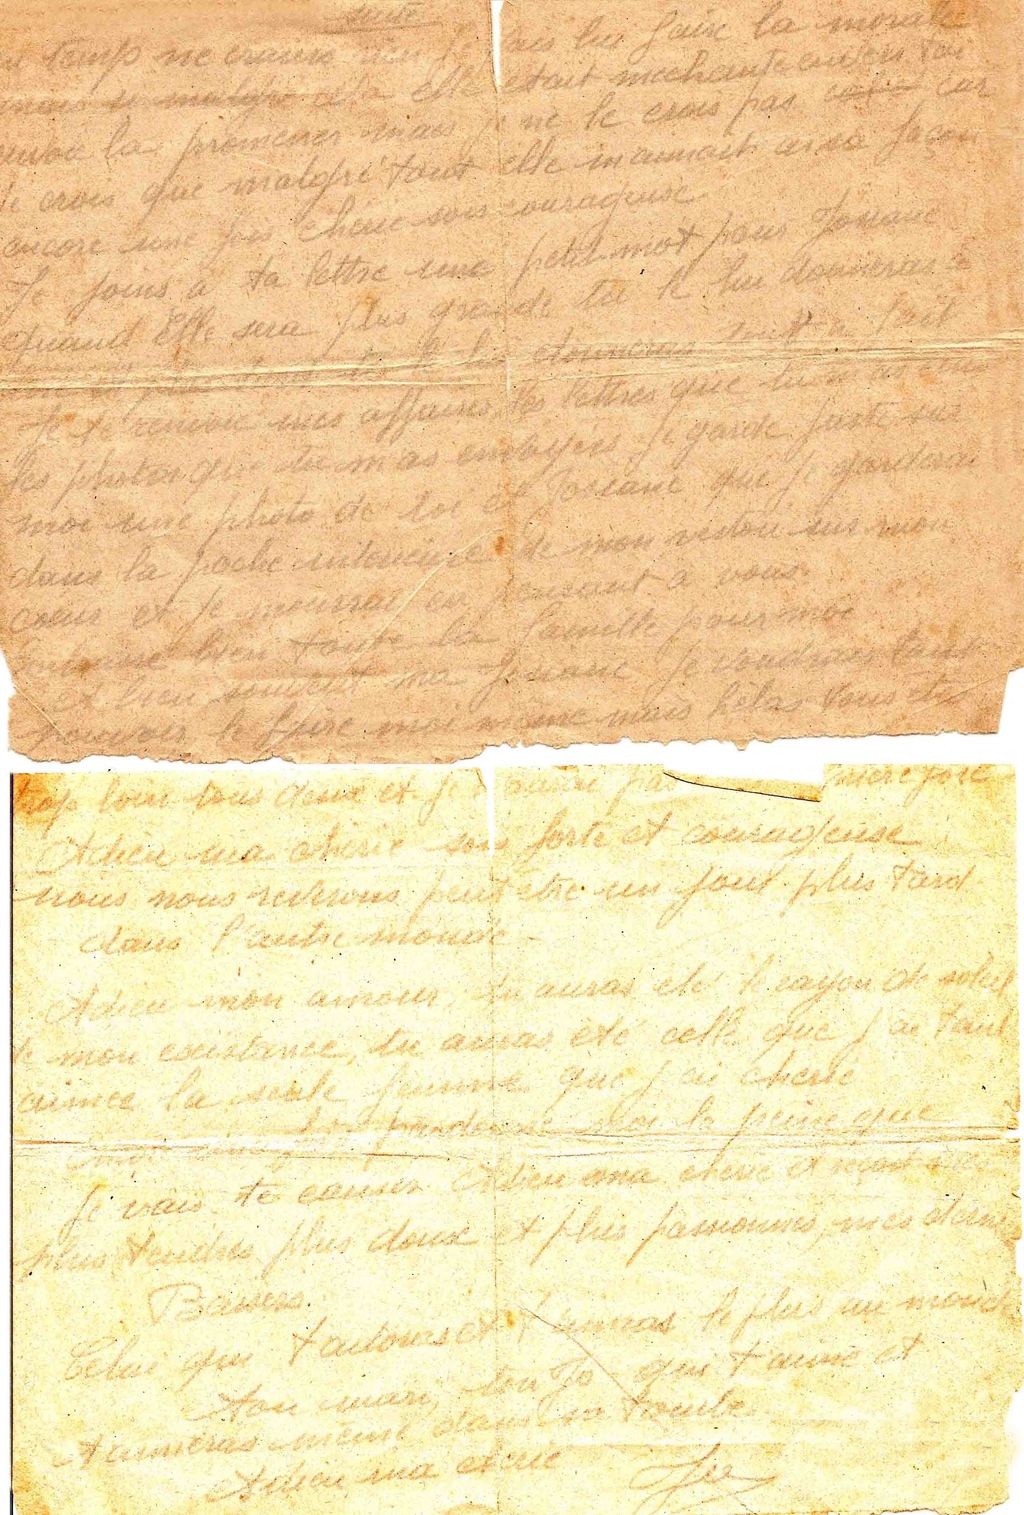 suite
temp ne crains rien je vais lui faire la morale
mais malgré cela elle etait mechante avien toi
la promener mais je ne le crois pas car
Je crois que malgré tout elle maimait a sa façon
encore une fois cherie sois courageuse
Je joins a ta lettre une petit mot pour Josiane
quand Elle sera plus grande tu le lui donneras
tu le lui donneras tout a fait
Je te renvoie mes affaires, les lettres que tu m'as
les photos que tu m'as envoyées. Je garde juste sur
moi une photo de toi et Josiane que je garderai
dans la poche interieure de mon veston sur mon
cœur et je mourrai en pensant a vous.
embrasse bien toute la famille pour moi
et bien souvent ma Josiane Je voudrais tant
pouvoir le faire moi meme mais helas vous etes
trop loin tous deux et je n'aurai pas
Adieu ma cherie sois forte et courageuse
nous nous reverrons peut etre un jour plus tard
dans l'autre monde -
Adieu mon amour, tu auras été le rayon de soleil
de mon existance, tu auras été celle que j'ai tant
aimée la seule femme que j'ai cherie
pardonne moi la peine que
Je vais te causer Adieu ma cherie et reçoit mes
plus tendres, plus doux et plus passionnes, mes derniers
Baisers.
Celui qui t'adoras et t'aimras le plus au monde
ton mari, ton Jo qui t'aime et
t'aimeras meme dans sa tombe
Adieu ma cherie